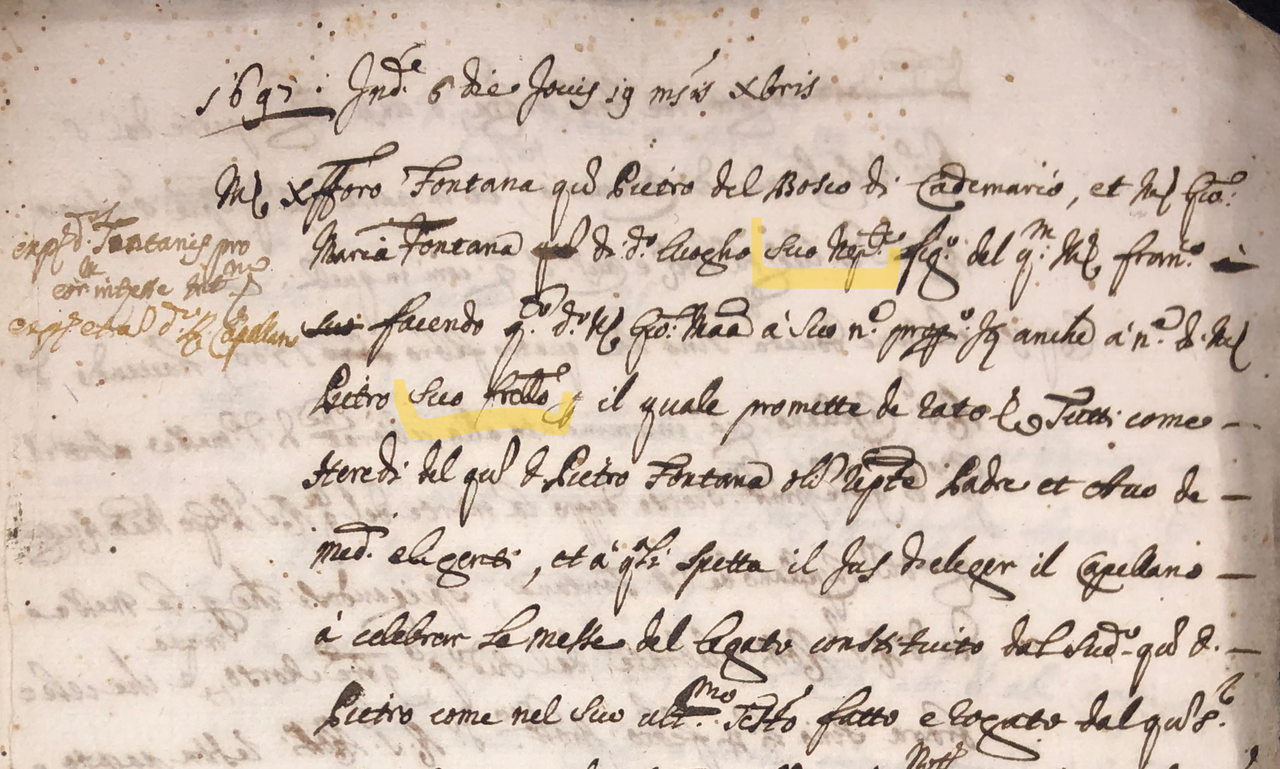 1697. Ind.e 6 die Jovis 19 m.sis Xbris
M. Xfforo Fontana qu. Pietro del Bosco di Cademario, et M. Gio:
Maria Fontana di d.o luogho suo Nep.te fig.o del q.m M. Fran.o
facendo d.o M. Gio: Maa à suo n.e prop.o anche à n.e di M.
Pietro suo frello il quale promette de rato Tutti come —
Heredi del qu. d. Pietro Fontana Padre et Avo de —
med. elegenti, et à q.li spetta il Jus di eleger il Capellano —
à celebrar le messe del legato constituito dal sud.o qu. d. —
Pietro come nel suo ult.mo Test.o fatto e rogato dal qu. S.r
d. Fontanis pro
et Capellano